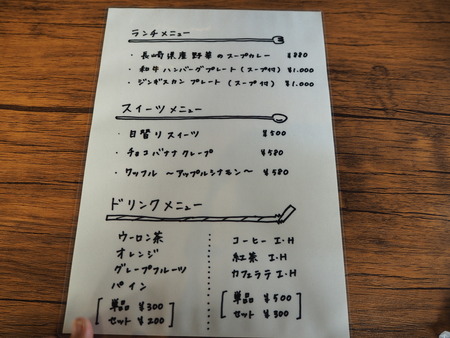 ランチメニュー
・長崎県産野菜のスープカレー ¥880
・和牛ハンバーグプレート (スープ付) ¥1.000
・ジンギスカンプレート (スープ付) ¥1.000
スイーツメニュー
・日替りスイーツ ¥500
・チョコバナナクレープ ¥580
・ワッフル 〜アップルシナモン〜 ¥580
ドリンクメニュー
ウーロン茶
オレンジ
グレープフルーツ
パイン
単品 ¥300
セット ¥200
コーヒー I・H
紅茶 I・H
カフェラテ I・H
単品 ¥500
セット ¥300